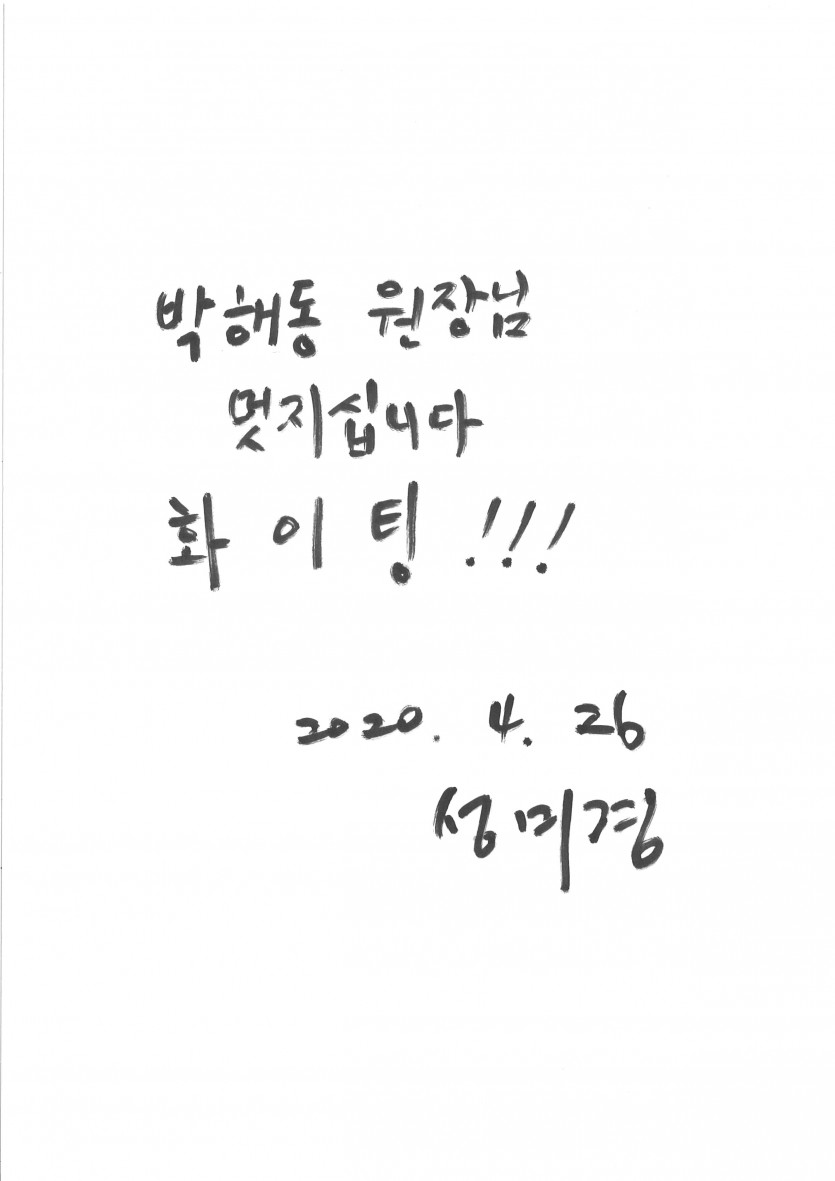 박해동 원장님
멋지십니다
화 이 팅 !!!
2020. 4. 26
성미경